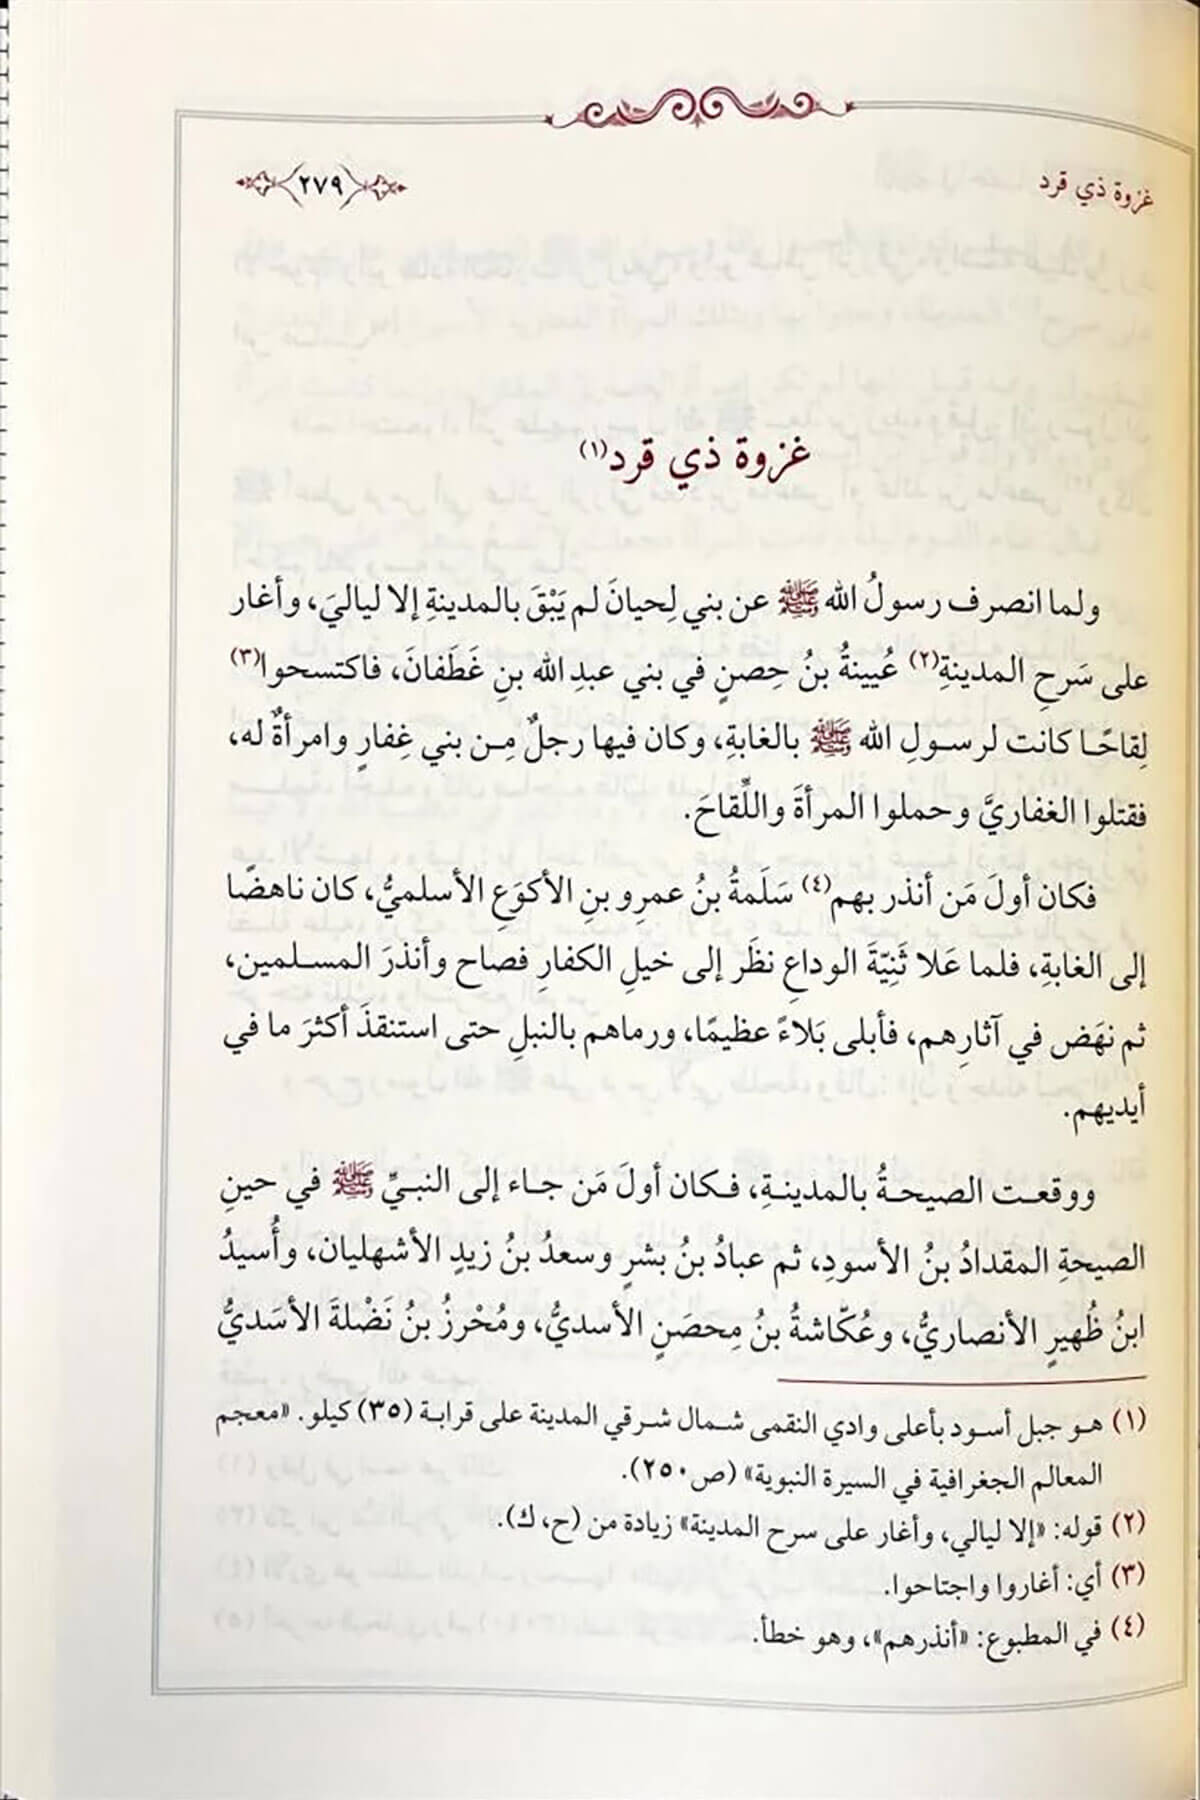 غزوة ذي قرد
٢٧٩
غزوة ذي قرد(١)
ولما انصرف رسولُ الله ﷺ عن بني لِحيانَ لم يَبْقَ بالمدينةِ إلا لياليَ، وأغار
على سَرحِ المدينةِ(٢) عُيينةُ بنُ حِصنٍ في بني عبدِ الله بنِ غَطَفانَ، فاكتسحوا(٣)
لِقاحًا كانت لرسولِ الله ﷺ بالغابةِ، وكان فيها رجلٌ مِن بني غِفارٍ وامرأةٌ له،
فقتلوا الغفاريَّ وحملوا المرأةَ واللِّقاحَ.
فكان أولَ مَن أنذر بهم(٤) سَلَمةُ بنُ عمرِو بنِ الأكوَعِ الأسلميُّ، كان ناهضًا
إلى الغابةِ، فلما عَلا ثَنِيّةَ الوداعِ نظَر إلى خيلِ الكفارِ فصاح وأنذرَ المسلمين،
ثم نهَض في آثارِهم، فأبلى بَلاءً عظيمًا، ورماهم بالنبلِ حتى استنقذَ أكثرَ ما في
أيديهم.
ووقعت الصيحةُ بالمدينةِ، فكان أولَ مَن جاء إلى النبيِّ ﷺ في حينِ
الصيحةِ المقدادُ بنُ الأسودِ، ثم عبادُ بنُ بشرٍ وسعدُ بنُ زيدٍ الأشهليان، وأُسيدُ
ابنُ ظُهيرٍ الأنصاريُّ، وعُكّاشةُ بنُ مِحصَنٍ الأسديُّ، ومُحْرزُ بنُ نَضْلةَ الأسَديُّ
(١) هو جبل أسود بأعلى وادي النقمى شمال شرقي المدينة على قرابة (٣٥) كيلو. «معجم
المعالم الجغرافية في السيرة النبوية» (ص٢٥٠).
(٢) قوله: «إلا ليالي، وأغار على سرح المدينة» زيادة من (ح، ك).
(٣) أي: أغاروا واجتاحوا.
(٤) في المطبوع: «أنذرهم»، وهو خطأ.